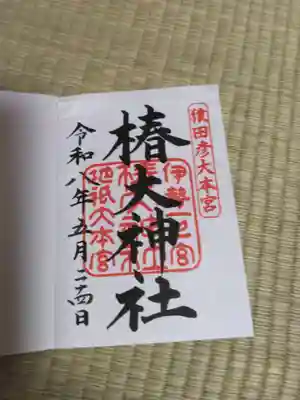 猿田彦大本宮
椿大神社
伊勢一之宮
椿大神社
地祇大本宮
令和八年五月二十四日